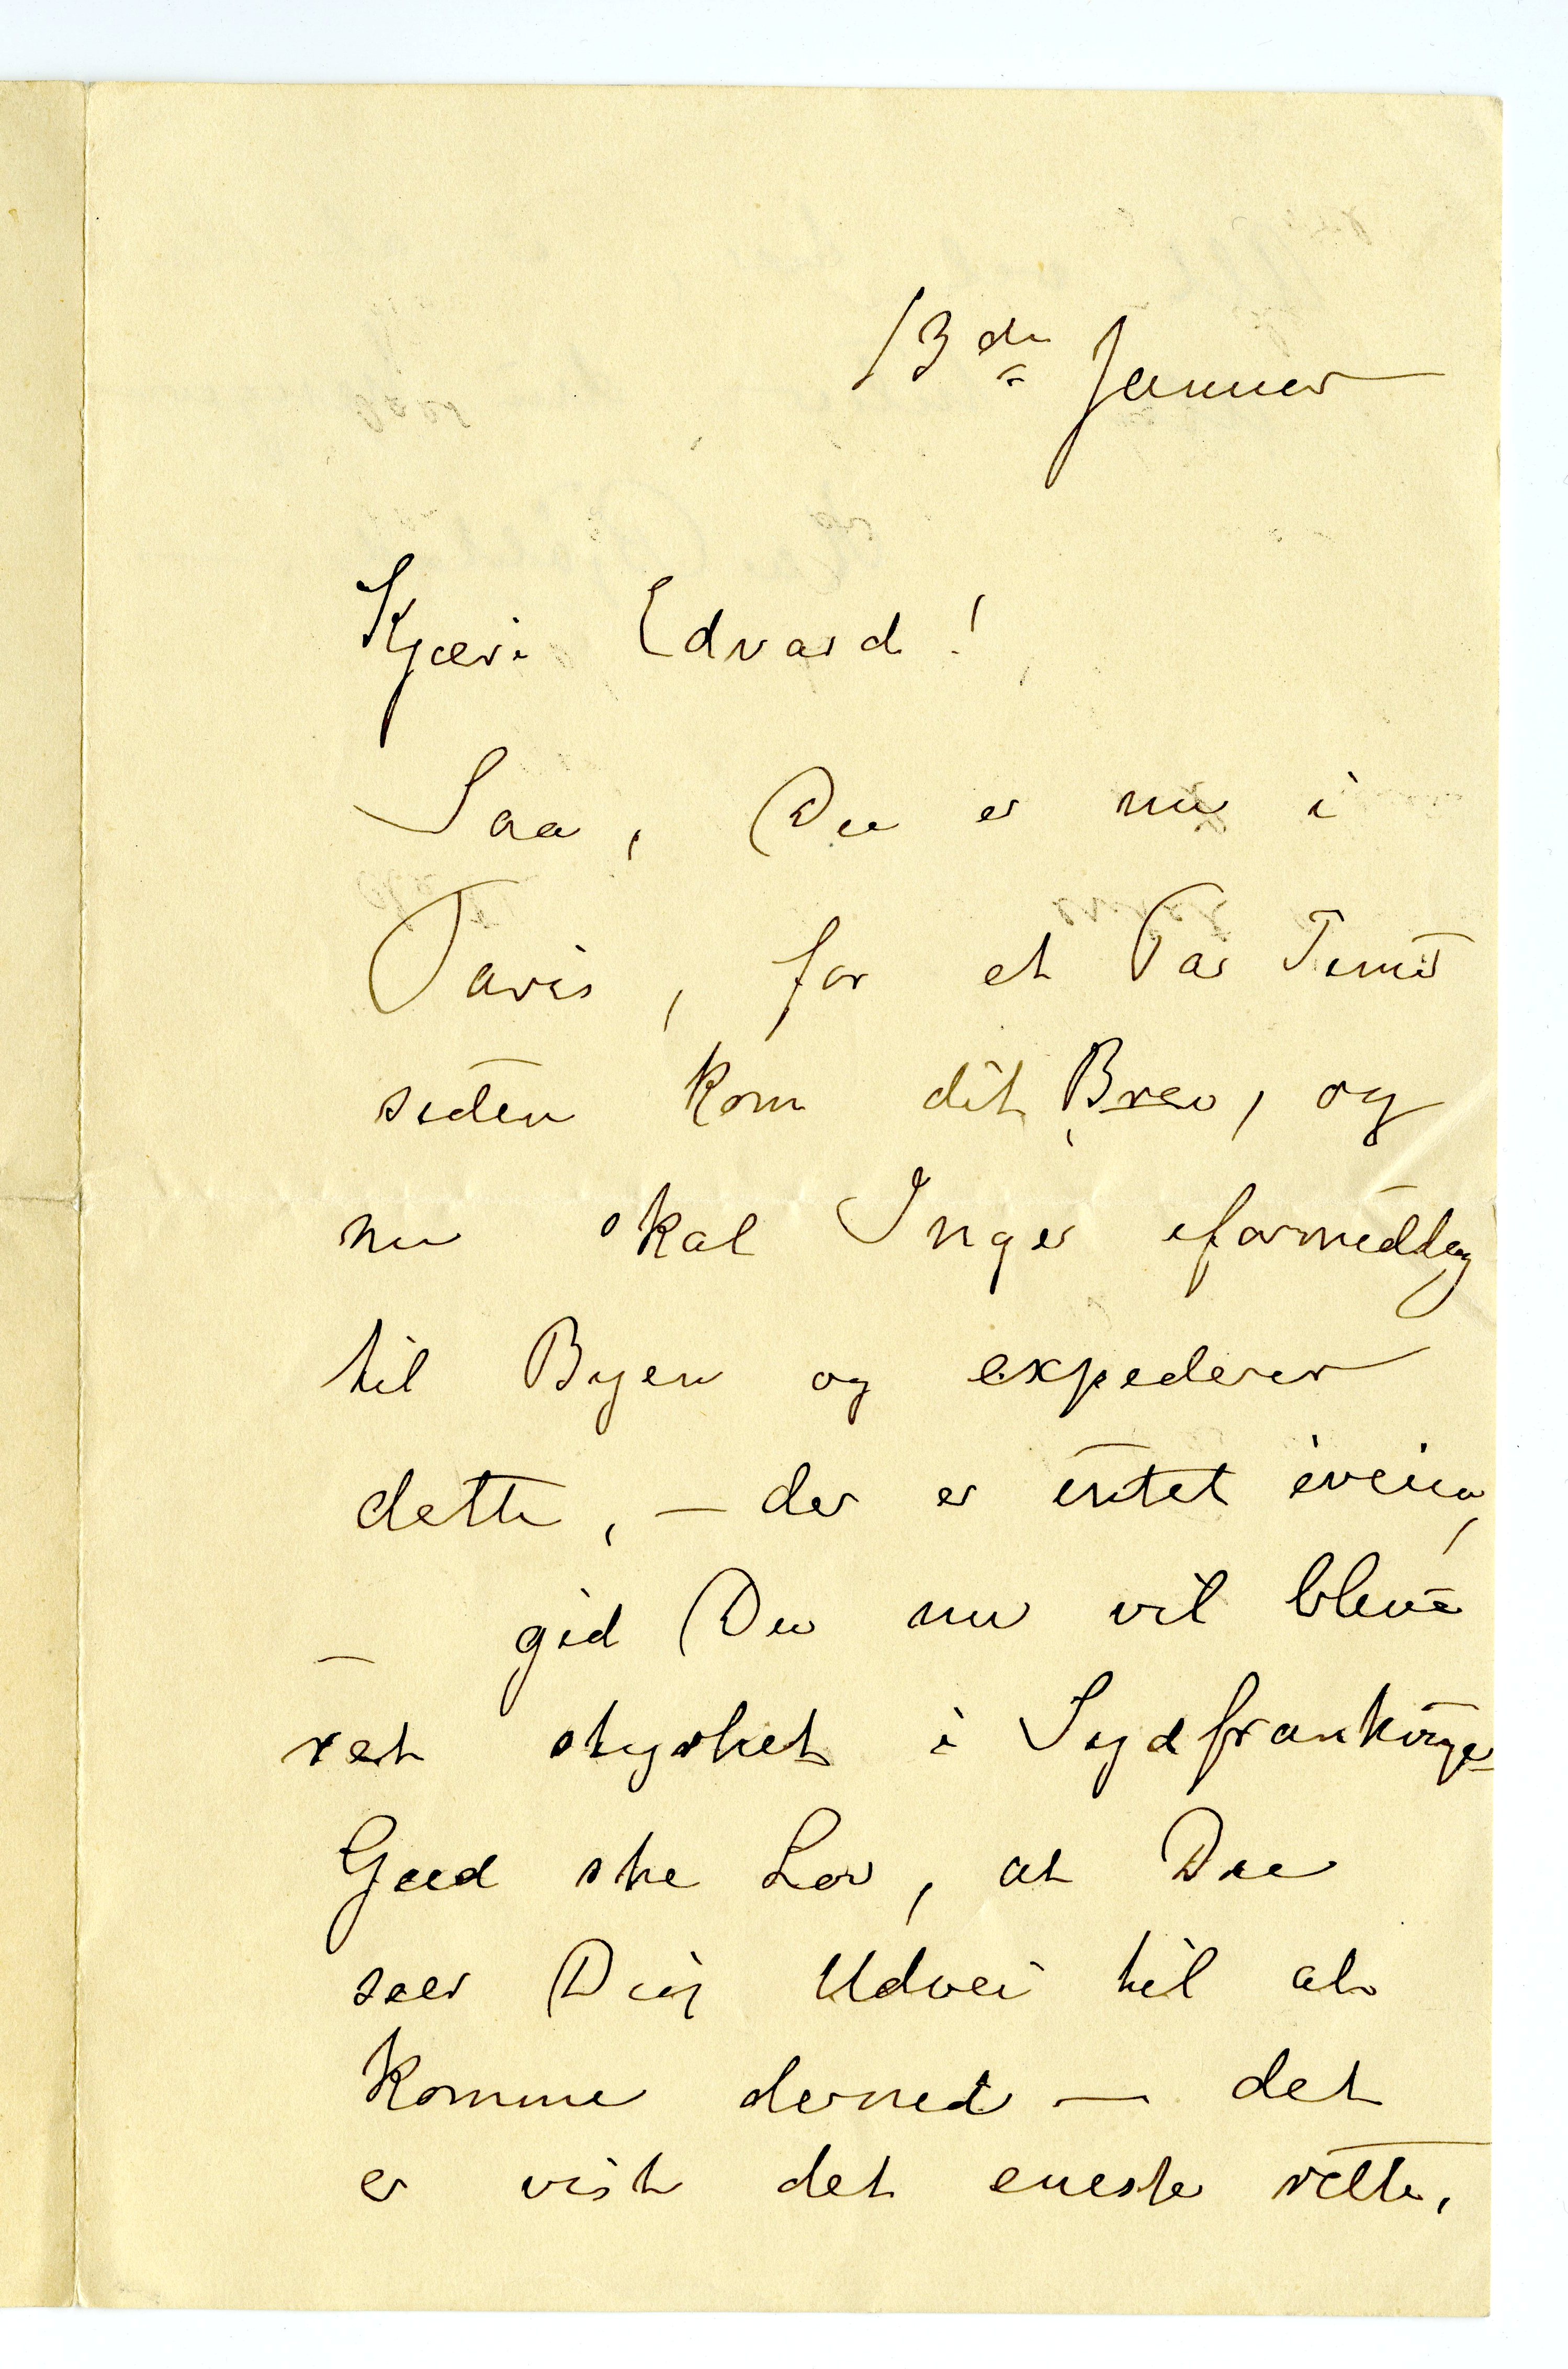 13de Januar
Kjære Edvard!
Saa, Du er nu i
Paris, for et Par Timer
siden kom dit Brev, og
nu skal Inger iformiddag
til Byen og expederer
dette, – der er intet iveien,
– gid Du nu vil blive
ret styrket i Sydfrankrige
Gud ske Lov, at Du
seer Dig Udvei til at
komme derned – det
er vist det eneste rette,